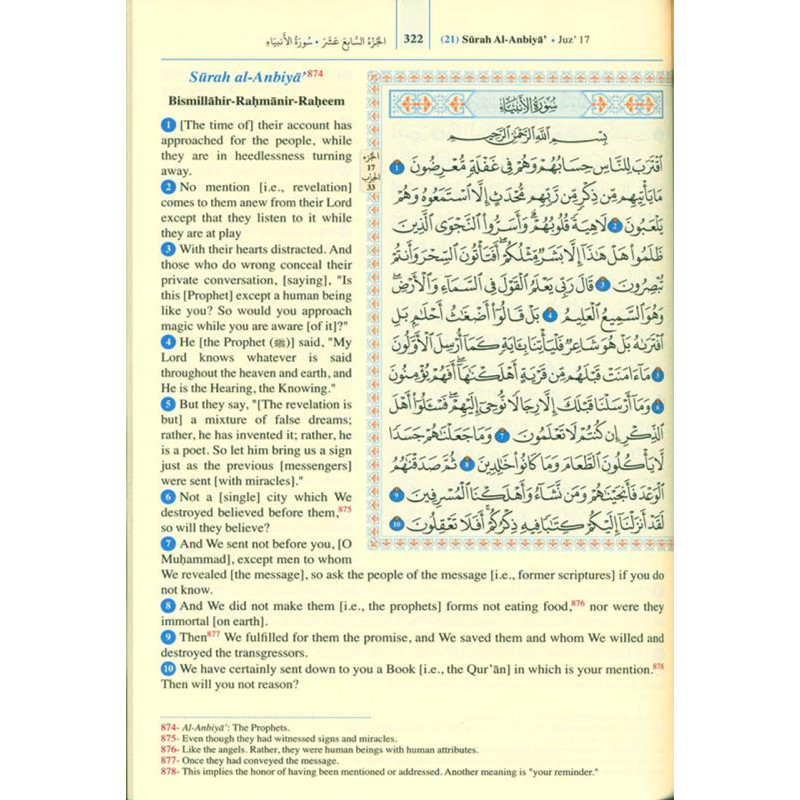 الجُزْءُ السَّابِعَ عَشَرَ • سُورَةُ الأَنبِيَاءِ
322
(21) Sūrah Al-Anbiyā’ • Juz’ 17
Sūrah al-Anbiyā’874
Bismillāhir-Raḥmānir-Raḥeem
1 [The time of] their account has
approached for the people, while
they are in heedlessness turning
away.
2 No mention [i.e., revelation]
comes to them anew from their Lord
except that they listen to it while
they are at play
3 With their hearts distracted. And
those who do wrong conceal their
private conversation, [saying], "Is
this [Prophet] except a human being
like you? So would you approach
magic while you are aware [of it]?"
4 He [the Prophet (ﷺ)] said, "My
Lord knows whatever is said
throughout the heaven and earth, and
He is the Hearing, the Knowing."
5 But they say, "[The revelation is
but] a mixture of false dreams;
rather, he has invented it; rather, he
is a poet. So let him bring us a sign
just as the previous [messengers]
were sent [with miracles]."
6 Not a [single] city which We
destroyed believed before them,875
so will they believe?
7 And We sent not before you, [O
Muḥammad], except men to whom
We revealed [the message], so ask the people of the message [i.e., former scriptures] if you do
not know.
8 And We did not make them [i.e., the prophets] forms not eating food,876 nor were they
immortal [on earth].
9 Then877 We fulfilled for them the promise, and We saved them and whom We willed and
destroyed the transgressors.
10 We have certainly sent down to you a Book [i.e., the Qur’ān] in which is your mention.878
Then will you not reason?
الجزء
17
الحزب
33
سُورَةُ الأَنبِيَاءِ
بِسْمِ ٱللَّهِ ٱلرَّحْمَٰنِ ٱلرَّحِيمِ
ٱقْتَرَبَ لِلنَّاسِ حِسَابُهُمْ وَهُمْ فِى غَفْلَةٍ مُّعْرِضُونَ 1
مَا يَأْتِيهِم مِّن ذِكْرٍ مِّن رَّبِّهِم مُّحْدَثٍ إِلَّا ٱسْتَمَعُوهُ وَهُمْ
يَلْعَبُونَ 2 لَاهِيَةً قُلُوبُهُمْ ۗ وَأَسَرُّوا۟ ٱلنَّجْوَى ٱلَّذِينَ
ظَلَمُوا۟ هَلْ هَٰذَآ إِلَّا بَشَرٌ مِّثْلُكُمْ ۖ أَفَتَأْتُونَ ٱلسِّحْرَ وَأَنتُمْ
تُبْصِرُونَ 3 قَالَ رَبِّى يَعْلَمُ ٱلْقَوْلَ فِى ٱلسَّمَآءِ وَٱلْأَرْضِ ۖ
وَهُوَ ٱلسَّمِيعُ ٱلْعَلِيمُ 4 بَلْ قَالُوٓا۟ أَضْغَٰثُ أَحْلَٰمٍۭ بَلِ
ٱفْتَرَىٰهُ بَلْ هُوَ شَاعِرٌ فَلْيَأْتِنَا بِـَٔايَةٍ كَمَآ أُرْسِلَ ٱلْأَوَّلُونَ
5 مَآ ءَامَنَتْ قَبْلَهُم مِّن قَرْيَةٍ أَهْلَكْنَٰهَآ ۖ أَفَهُمْ يُؤْمِنُونَ
6 وَمَآ أَرْسَلْنَا قَبْلَكَ إِلَّا رِجَالًا نُّوحِىٓ إِلَيْهِمْ ۖ فَسْـَٔلُوٓا۟ أَهْلَ
ٱلذِّكْرِ إِن كُنتُمْ لَا تَعْلَمُونَ 7 وَمَا جَعَلْنَٰهُمْ جَسَدًا
لَّا يَأْكُلُونَ ٱلطَّعَامَ وَمَا كَانُوا۟ خَٰلِدِينَ 8 ثُمَّ صَدَقْنَٰهُمُ
ٱلْوَعْدَ فَأَنجَيْنَٰهُمْ وَمَن نَّشَآءُ وَأَهْلَكْنَا ٱلْمُسْرِفِينَ 9
لَقَدْ أَنزَلْنَآ إِلَيْكُمْ كِتَٰبًا فِيهِ ذِكْرُكُمْ ۖ أَفَلَا تَعْقِلُونَ 10
874- Al-Anbiyā’: The Prophets.
875- Even though they had witnessed signs and miracles.
876- Like the angels. Rather, they were human beings with human attributes.
877- Once they had conveyed the message.
878- This implies the honor of having been mentioned or addressed. Another meaning is "your reminder."